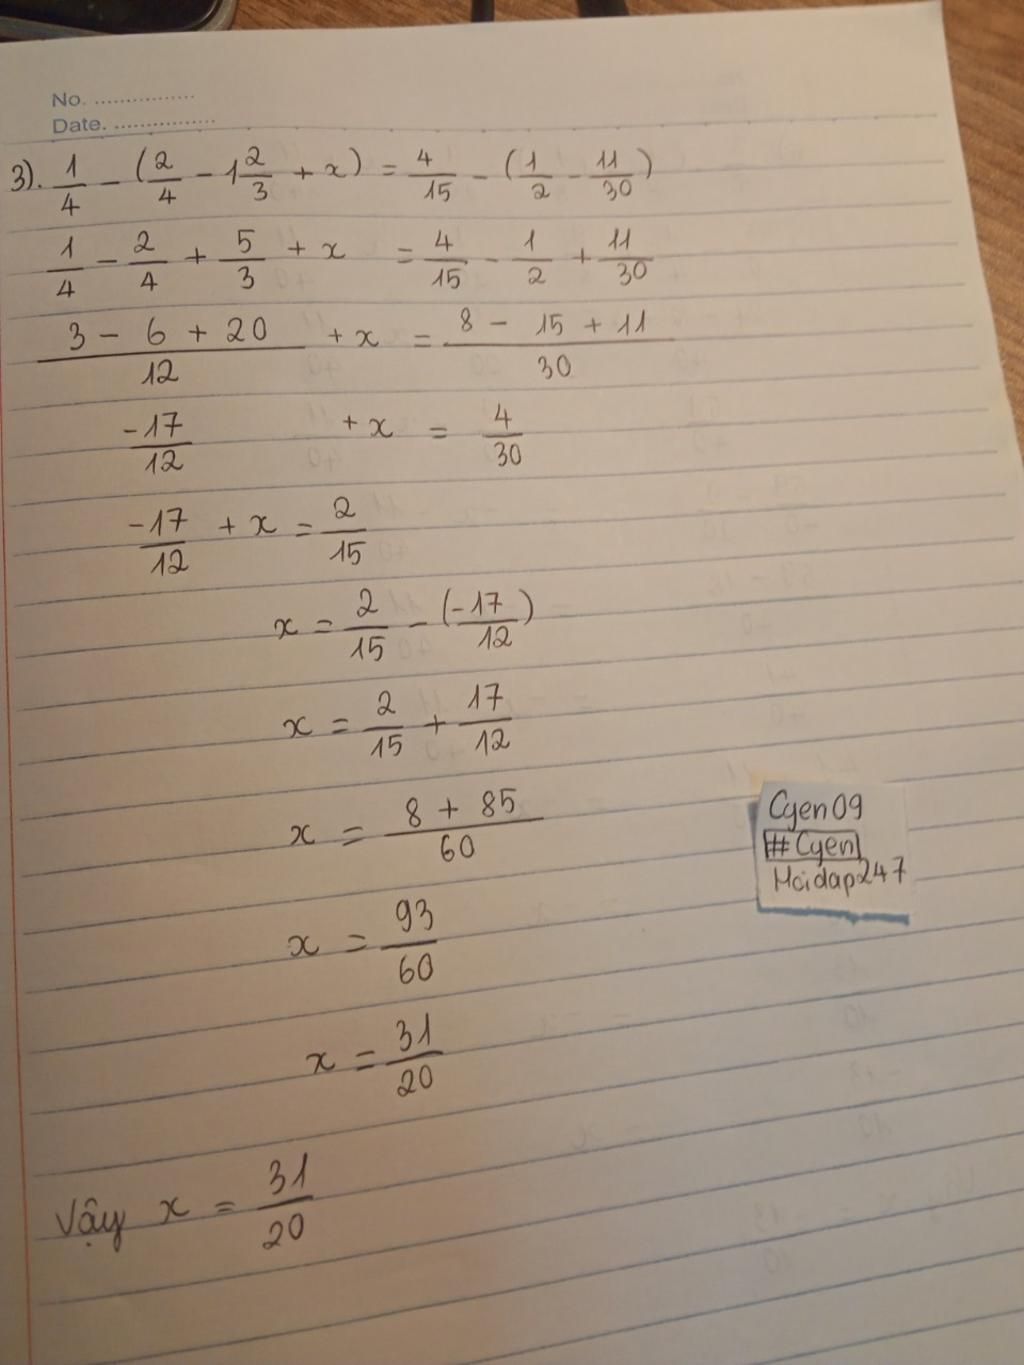 No. ................
Date. ................
3). 1/4 - (2/4 - 1 2/3 + x) = 4/15 - (1/2 - 11/30)
1/4 - 2/4 + 5/3 + x = 4/15 - 1/2 + 11/30
(3 - 6 + 20)/12 + x = (8 - 15 + 11)/30
-17/12 + x = 4/30
-17/12 + x = 2/15
x = 2/15 - (-17/12)
x = 2/15 + 17/12
x = (8 + 85)/60
x = 93/60
x = 31/20
Vậy x = 31/20
Cyen09
#Cyen
Hoidap247